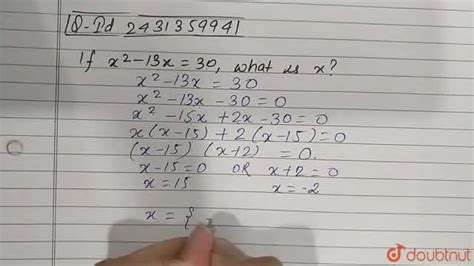 Q-Id 2431359941
If x²-13x = 30, what is x?
x²-13x = 30
x²-13x - 30 = 0
x² -15x + 2x - 30 = 0
x(x-15) + 2(x-15) = 0
(x-15) (x+2) = 0.
x-15 = 0 OR x+2 = 0
x = 15 x = -2
x = {
doubtnut